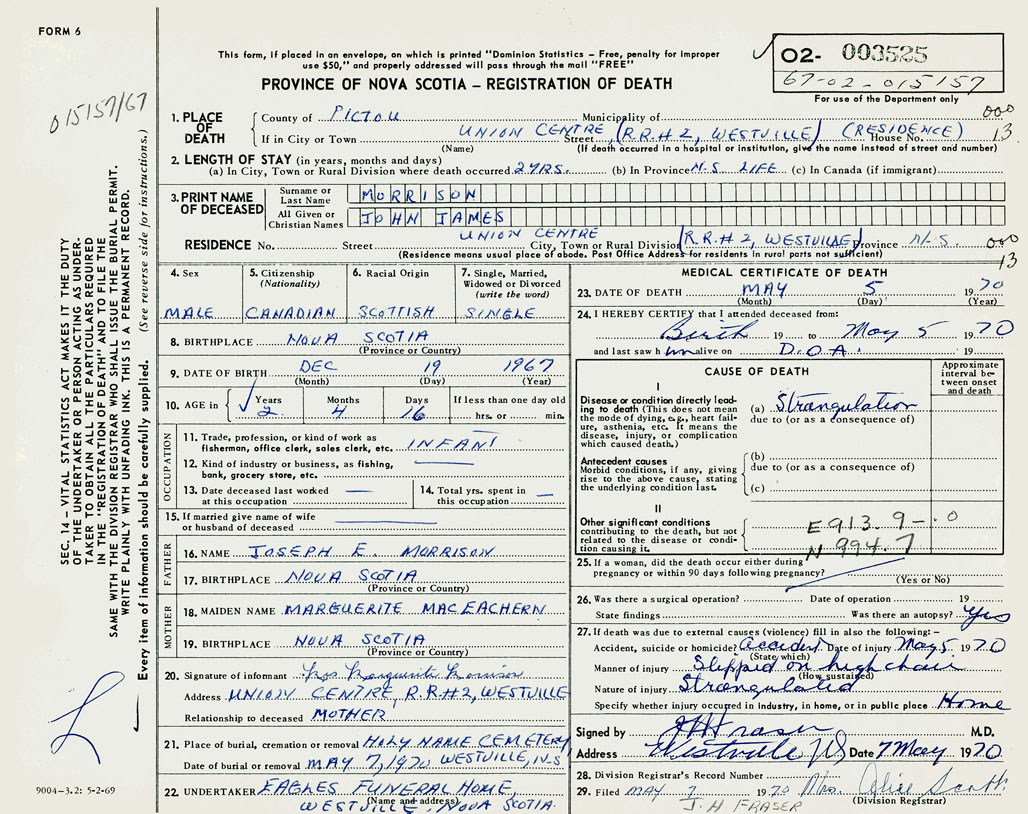 FORM 6
015157/67
This form, if placed in an envelope, on which is printed "Dominion Statistics – Free, penalty for improper
use $50," and properly addressed will pass through the mail "FREE"
PROVINCE OF NOVA SCOTIA – REGISTRATION OF DEATH
02- 003525
67-02-015157
For use of the Department only
1. PLACE OF DEATH
County of PICTOU Municipality of 000
If in City or Town UNION CENTRE Street (R.R.#2, WESTVILLE) (RESIDENCE) House No. 13
(Name) (If death occurred in a hospital or institution, give the name instead of street and number)
2. LENGTH OF STAY (in years, months and days)
(a) In City, Town or Rural Division where death occurred 2 YRS. (b) In Province N.S. LIFE (c) In Canada (if immigrant)
3. PRINT NAME OF DECEASED
Surname or Last Name MORRISON
All Given or Christian Names JOHN JAMES
RESIDENCE No. Street UNION CENTRE City, Town or Rural Division (R.R.#2, WESTVILLE) Province N.S. 000
(Residence means usual place of abode. Post Office Address for residents in rural parts not sufficient) 13
4. Sex MALE
5. Citizenship (Nationality) CANADIAN
6. Racial Origin SCOTTISH
7. Single, Married, Widowed or Divorced (write the word) SINGLE
8. BIRTHPLACE NOVA SCOTIA
(Province or Country)
9. DATE OF BIRTH DEC 19 1967
(Month) (Day) (Year)
10. AGE in Years 2 Months 4 Days 16 If less than one day old hrs. or min.
OCCUPATION
11. Trade, profession, or kind of work as
fisherman, office clerk, sales clerk, etc. INFANT
12. Kind of industry or business, as fishing,
bank, grocery store, etc.
13. Date deceased last worked
at this occupation
14. Total yrs. spent in
this occupation
15. If married give name of wife
or husband of deceased
FATHER
16. NAME JOSEPH E. MORRISON
17. BIRTHPLACE NOVA SCOTIA
(Province or Country)
MOTHER
18. MAIDEN NAME MARGUERITE MACEACHERN
19. BIRTHPLACE NOVA SCOTIA
(Province or Country)
20. Signature of informant Mrs Marguerite Morrison
Address UNION CENTRE, R.R.#2, WESTVILLE
Relationship to deceased MOTHER
21. Place of burial, cremation or removal HOLY NAME CEMETERY
Date of burial or removal MAY 7, 1970 WESTVILLE, N.S
22. UNDERTAKER EAGLES FUNERAL HOME,
(Name and address) WESTVILLE, NOVA SCOTIA
MEDICAL CERTIFICATE OF DEATH
23. DATE OF DEATH MAY 5 1970
(Month) (Day) (Year)
24. I HEREBY CERTIFY that I attended deceased from:
Birth 19 to May 5 1970
and last saw him alive on D.O.A. 19
CAUSE OF DEATH
Approximate interval between onset and death
I
Disease or condition directly leading to death (This does not mean the mode of dying, e.g., heart failure, asthenia, etc. It means the disease, injury, or complication which caused death.)
(a) Strangulation
due to (or as a consequence of)
Antecedent causes
Morbid conditions, if any, giving rise to the above cause, stating the underlying condition last.
(b)
due to (or as a consequence of)
(c)
II
Other significant conditions
contributing to the death, but not related to the disease or condition causing it.
E913.9-.0
N 994.7
25. If a woman, did the death occur either during
pregnancy or within 90 days following pregnancy?
(Yes or No)
26. Was there a surgical operation? Date of operation 19
State findings Was there an autopsy? Yes
27. If death was due to external causes (violence) fill in also the following: –
Accident, suicide or homicide? Accident Date of injury May 5 1970
(State which)
Manner of injury Slipped on high chair
(How sustained)
Nature of injury Strangulated
Specify whether injury occurred in industry, in home, or in public place Home
Signed by JH Fraser M.D.
Address Westville NS Date 7 May 1970
28. Division Registrar's Record Number
29. Filed MAY 7 1970 Mrs. Alice Scott
J. H FRASER (Division Registrar)
SEC. 14 – VITAL STATISTICS ACT MAKES IT THE DUTY
OF THE UNDERTAKER OR PERSON ACTING AS UNDER-
TAKER TO OBTAIN ALL THE PARTICULARS REQUIRED
IN THE "REGISTRATION OF DEATH" AND TO FILE THE
SAME WITH THE DIVISION REGISTRAR WHO SHALL ISSUE THE BURIAL PERMIT.
WRITE PLAINLY WITH UNFADING INK. THIS IS A PERMANENT RECORD.
Every item of information should be carefully supplied. (See reverse side for instructions.)
9004-3.2: 5-2-69